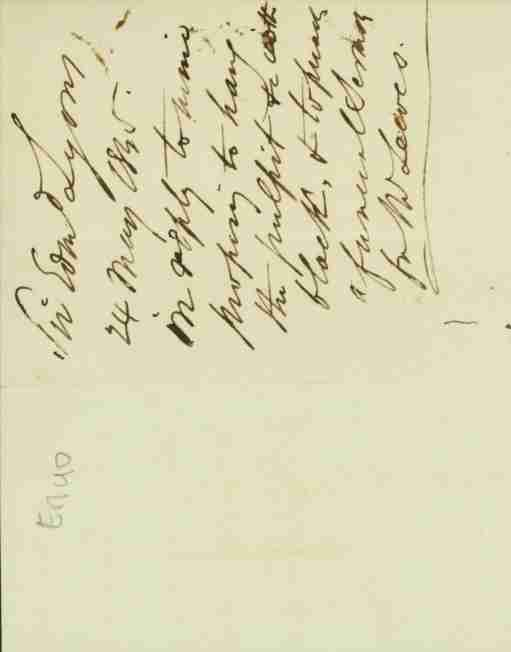 Sir Edmd Lyons
24 May
in reply to mine
proposing to hang
the pulpit &c with
black, & to preach
a funeral Sermon
for Mr Leeves.
E7140